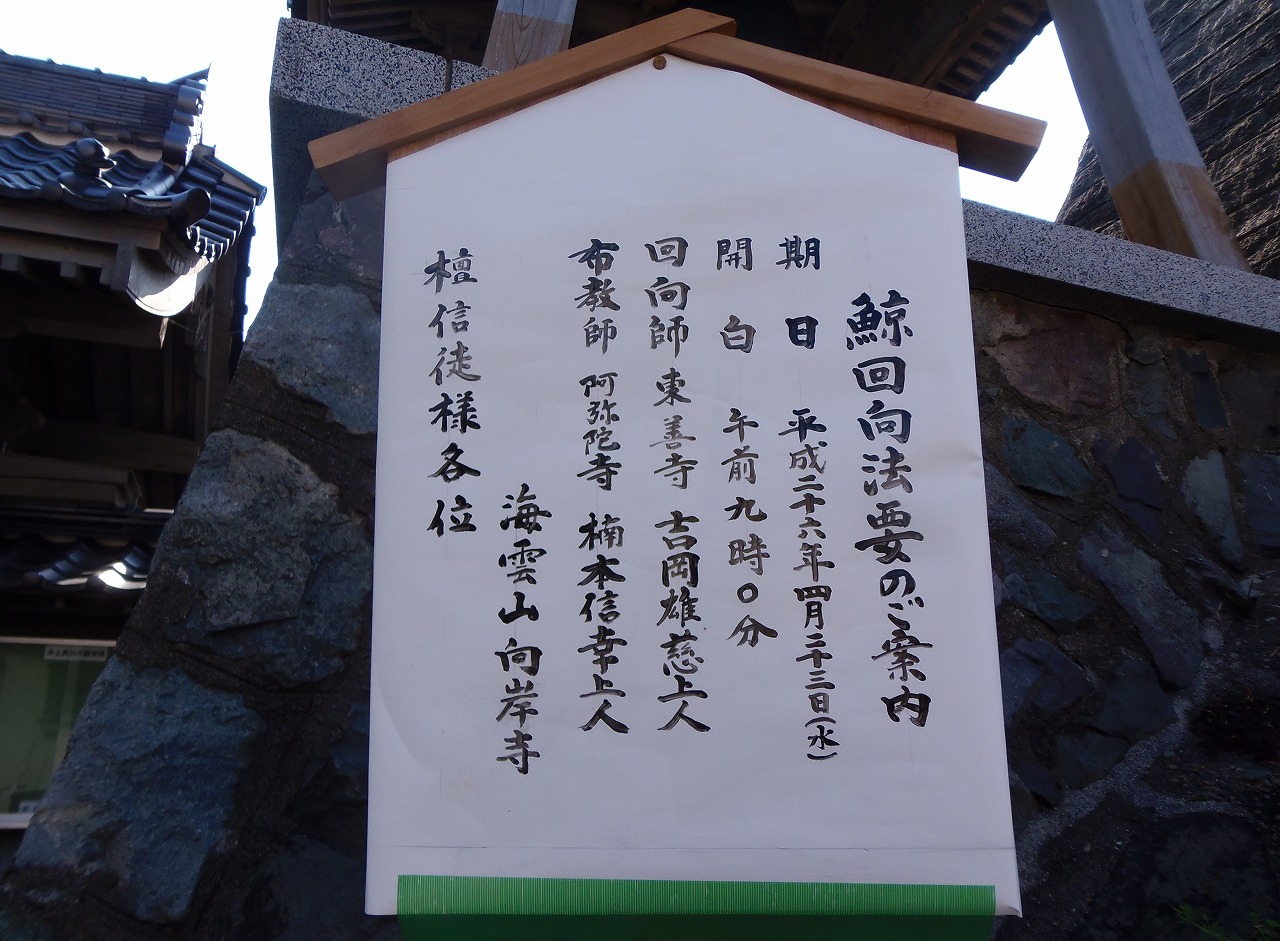 鯨回向法要のご案内
期日 平成二十六年四月二十三日(水)
開白 午前九時0分
回向師 東善寺 吉岡雄慈上人
布教師 阿弥陀寺 楠本信幸上人
海雲山向岸寺
檀信徒様各位